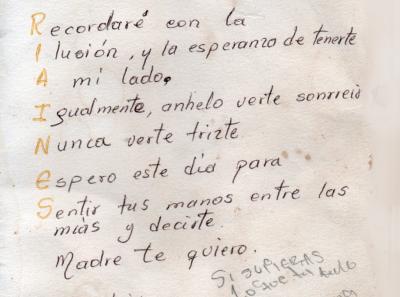 Recordaré con la
Ilusión, y la esperanza de tenerte
A mi lado.
Igualmente, anhelo verte sonrreir
Nunca verte trizte
Espero este día para
Sentir tus manos entre las
mías y decirte.
Madre te quiero.
SI SUPIERAS
LO QUE